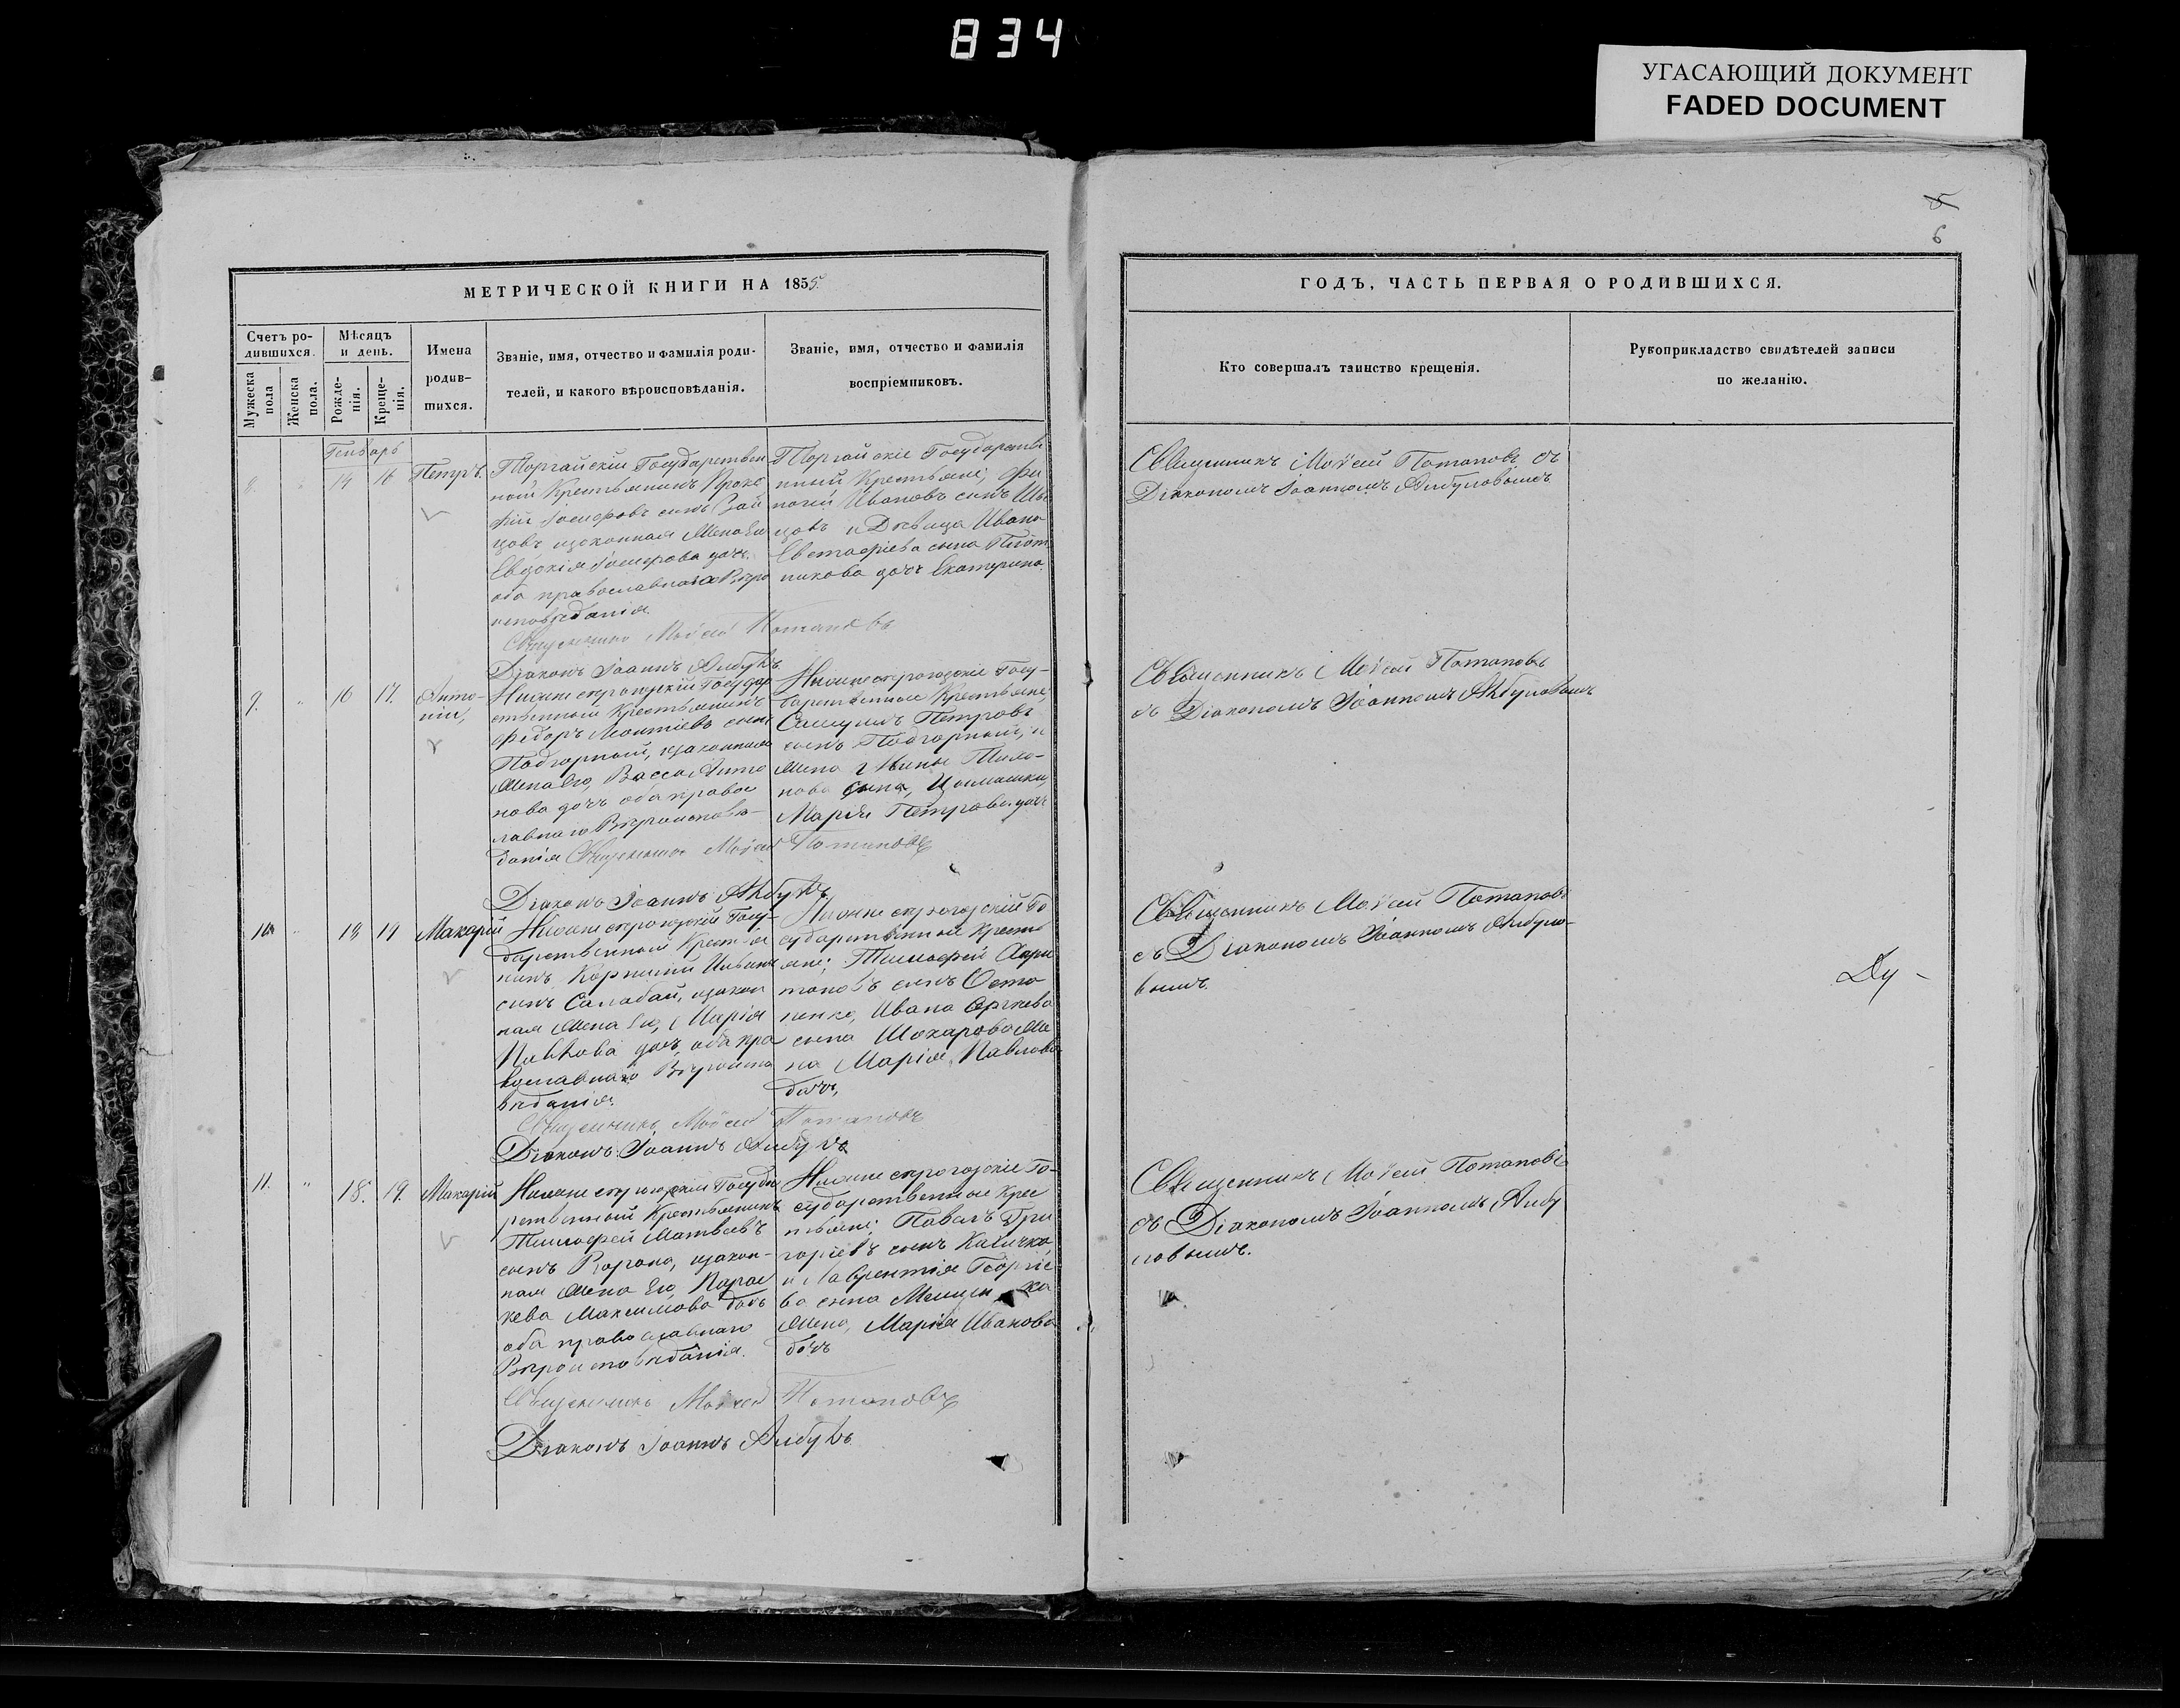 834
УГАСАЮЩИЙ ДОКУМЕНТ
FADED DOCUMENT
5
6
МЕТРИЧЕСКОЙ КНИГИ НА 1855
ГОДЪ, ЧАСТЬ ПЕРВАЯ О РОДИВШИХСЯ.
Счетъ ро-
дившихся.
Мужеска
пола
Женска
пола.
Мѣсяцъ
и день.
Рожде-
нія.
Креще-
нія.
Имена
родив-
шихся.
Званіе, имя, отчество и фамилія роди-
телей, и какого вѣроисповѣданія.
Званіе, имя, отчество и фамилія
воспріемниковъ.
Кто совершалъ таинство крещенія.
Рукоприкладство свидѣтелей записи
по желанію.
Генварь
8. 14 16 Петръ.
Торгайскій Государствен
ный Крестьянинъ Проко
фій Іосифовъ сынъ Зай
цовъ изаконная Жена Его
Евдокія Іосифова дочь.
оба православнаго Вѣро
исповѣданія.
Священникъ Моѵсей Потаповъ
Діаконъ Іоаннъ
Торгайскіе Государстве
нный Крестьяне;
Ивановъ сынъ
и Дѣвица Ивана
Евстафіева сына Плот
никова дочь Екатерина.
Священникъ Моѵсей Потаповъ съ
Діакономъ Іоанномъ
9. 16 17. Анто-
ній,
Государ
ственный Крестьянинъ
Федоръ Леонтіевъ сынъ
Подгорный, изаконная
Жена Его, Васса Анто
нова дочь оба правос
лавнаго Вѣроисповѣ-
данія Священникъ Моѵсей Потаповъ
Діаконъ Іоаннъ
Госу-
дарственные Крестьяне,
Самуилъ Петровъ
сынъ Подгорный, и
Жена
нова сына,
Марія Петрова дочь
Священникъ Моѵсей Потаповъ
съ Діакономъ Іоанномъ
10. 18 19 Макарій
Госу-
дарственный Крестья
нинъ Корнилій
сынъ Салабай, изакон
ная Жена Его, Марія
Павлова дочь, оба пра
вославнаго Вѣроиспо
вѣданія.
Священникъ Моѵсей Потаповъ
Діаконъ Іоаннъ
Го
сударственные Кресть
яне; Тимофей Хари
тоновъ сынъ Оста
пенко, Ивана Сергѣева
сына Шохарова Же
на Марія Павлова
дочь,
Священникъ Моѵсей Потаповъ
съ Діакономъ Іоанномъ
вымъ.
11. 18. 19. Макарій
Государ
рственный Крестьянинъ
Тимофей Матвѣевъ
сынъ Ворона, изакон-
ная Жена Его, Парас
кева Максимова дочь
оба православнаго
Вѣроисповѣданія.
Священникъ Моѵсей Потаповъ
Діаконъ Іоаннъ
Го-
сударственные Крес
тьяне; Павелъ Гри
горіевъ сынъ Каличко,
и Лаврентія Георгіе
ва сына
Жена, Марія Иванова
дочь
Священникъ Моѵсей Потаповъ
съ Діакономъ Іоанномъ
ловымъ.